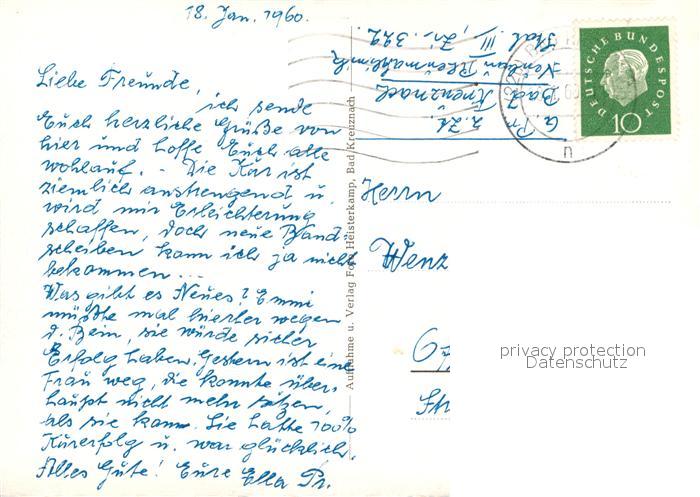 18. Jan. 1960.
Liebe Freunde,
ich sende
Euch herzliche Grüße von
hier und hoffe Euch alle
wohlauf. - Die Kur ist
ziemlich anstrengend u.
wird mir Erleichterung
schaffen, doch neue Band-
scheiben kann ich ja nicht
bekommen ...
Was gibt es Neues? Emmi
müßte mal hierher wegen
d. Bein, sie würde sicher
Erfolg haben. Gestern ist eine
Frau weg, die konnte über-
haupt nicht mehr sitzen,
als sie kam. Sie hatte 100%
Kurerfolg u. war glücklich.
Alles Gute! Eure Ella Pr.
Aufnahme u. Verlag Foto Heisterkamp, Bad Kreuznach
E. Pr.
z. Zt.
Bad Kreuznach
Neubau Rheumaklinik
Stat. III, Zi. 322
DEUTSCHE BUNDESPOST
10
n
Herrn
Wenz
Str
privacy protection
Datenschutz